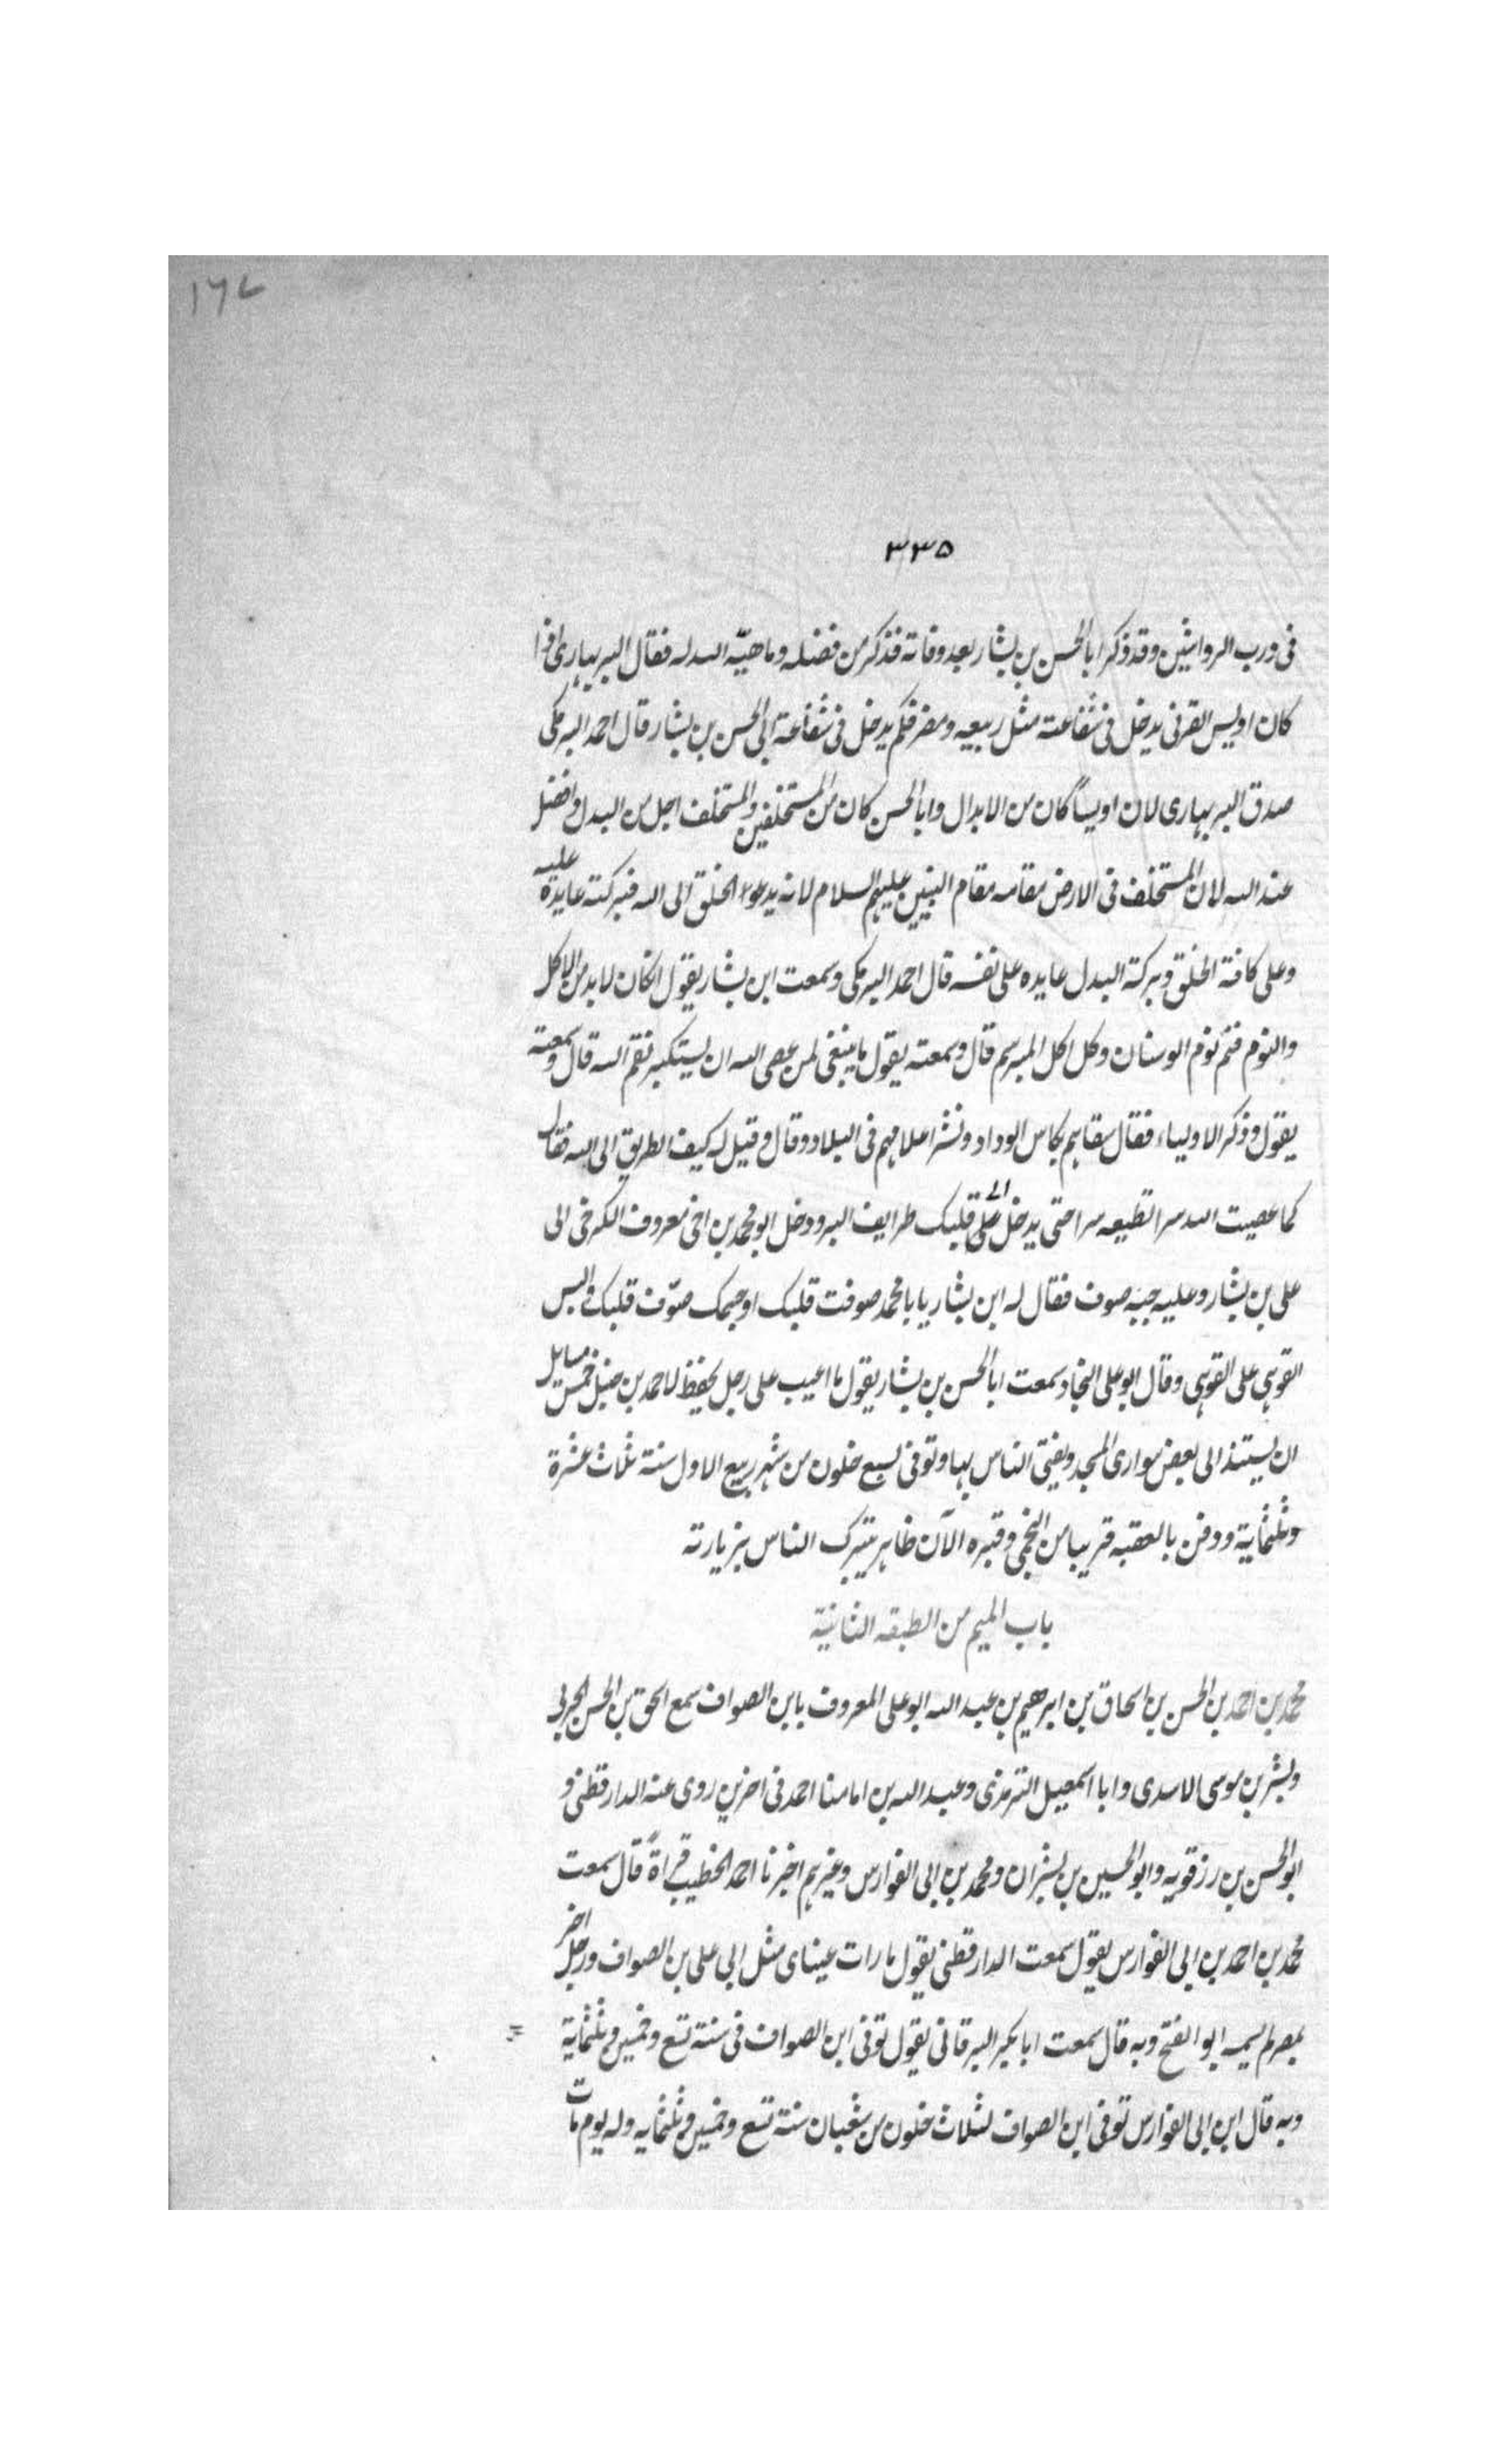 ١٦٧
٣٣٥
فى درب الرواشين وقد ذكر ابا الحسن بن بشار بعد وفاته فذكر من فضله وما هيّه الله له فقال البربهارى اذا
كان اويس القرنى يدخل فى شفاعته مثل ربيعه ومضر فكم يدخل فى شفاعة ابى الحسن بن بشار قال احمد البرمكى
صدق البربهارى لان اويساً كان من الابدال وابا الحسن كان من المستخلفين والمستخلف اجل من البدل وافضل
عند الله لان المستخلف فى الارض مقامه مقام النبيين عليهم السلام لانه يدعوا الخلق الى الله فبركته عايدة عليه
وعلى كافة الخلق وبركة البدل عايده على نفسه قال احمد البرمكى وسمعت ابن بشار يقول اذا كان لابد من الاكل
والنوم فنم نوم الوسنان وكل اكل المبرسم قال وسمعته يقول ما ينبغى لمن عصى الله ان يستكبر نقم الله قال وسمعته
يقول وذكر الاولياء فقال سقاهم بكاس الوداد ونشر اعلامهم فى البلاد وقال وقيل له كيف الطريق الى الله فقال
كما عصيت الله سرا تطيعه سرا حتى يدخل الى على قلبك طرايف البر ودخل ابو محمد بن اخى معروف الكرخى الى
على بن بشار وعليه جبه صوف فقال له ابن بشار يا با محمد صوفت قلبك او جسمك صوّف قلبك والبس
القوهى على القوهى وقال ابو على النجاد سمعت ابا الحسن بن بشار يقول ما اعيب على رجل يحفظ لاحمد بن حنبل خمس مسايل
ان يستند الى بعض سوارى المسجد ويفتى الناس بها وتوفى لسبع خلون من شهر ربيع الاول سنة ثلاث عشرة
وثلثماية ودفن بالعقبه قريبا من النجمى وقبره الآن ظاهر يتبرك الناس بزيارته
باب الميم من الطبقه الثانية
محمد بن احمد بن الحسن بن اسحاق بن ابرهيم بن عبد الله ابو على المعروف بابن الصواف سمع اسحق بن الحسن الحربى
وبشر بن موسى الاسدى وابا اسمعيل الترمذى وعبد الله بن امامنا احمد فى اخرين روى عنه الدارقطنى و
ابو الحسن بن رزقويه وابو الحسين بن بشران ومحمد بن ابى الفوارس وغيرهم اخبرنا احمد الخطيب قراةً قال سمعت
محمد بن احمد بن ابى الفوارس يقول سمعت الدارقطنى يقول ما رات عيناى مثل ابى على بن الصواف ورجل اخر
بمصر لم يسمه ابو الفتح وبه قال سمعت ابا بكير البرقانى يقول توفى ابن الصواف فى سنة تسع وخمسين وثلثماية
وبه قال ابن ابى الفوارس توفى ابن الصواف لثلاث خلون من شعبان سنة تسع وخمسين وثلثمايه وله يوم مات